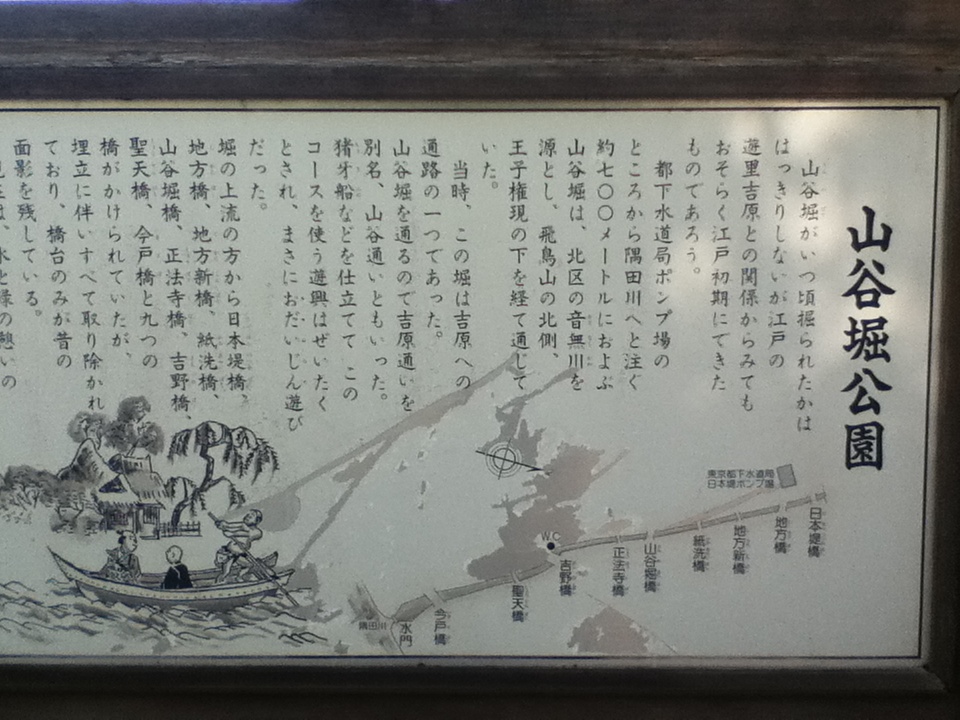 山谷堀公園
山谷堀がいつ頃掘られたかは
はっきりしないが江戸の
遊里吉原との関係からみても
おそらく江戸初期にできた
ものであろう。
都下水道局ポンプ場の
ところから隅田川へと注ぐ
約七〇〇メートルにおよぶ
山谷堀は、北区の音無川を
源とし、飛鳥山の北側、
王子権現の下を経て通じて
いた。
当時、この堀は吉原への
通路の一つであった。
山谷堀を通るので吉原通いを
別名、山谷通いともいった。
猪牙船などを仕立てて この
コースを使う遊興はぜいたく
とされ、まさにおだいじん遊び
だった。
堀の上流の方から日本堤橋、
地方橋、地方新橋、紙洗橋、
山谷堀橋、正法寺橋、吉野橋、
聖天橋、今戸橋と九つの
橋がかけられていたが、
埋立に伴いすべて取り除かれ
ており、橋台のみが昔の
面影を残している。
東京都下水道局
日本堤ポンプ場
日本堤橋
地方橋
地方新橋
紙洗橋
山谷堀橋
正法寺橋
W.C
吉野橋
聖天橋
今戸橋
水門
隅田川